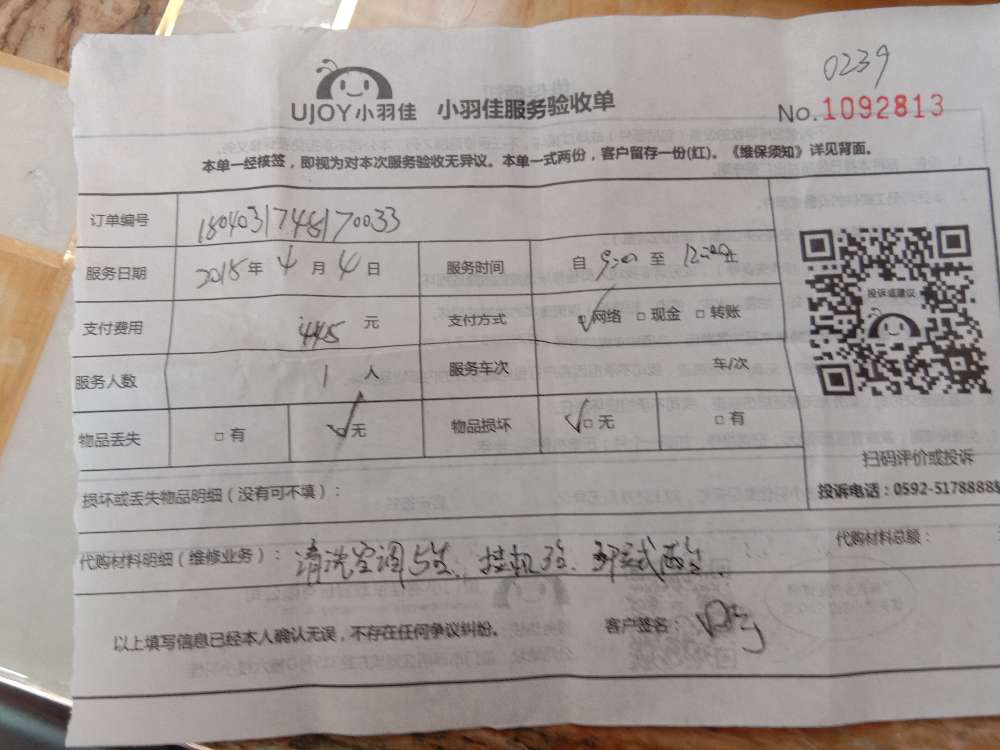 0239
UJOY小羽佳 小羽佳服务验收单
No.1092813
本单一经核签，即视为对本次服务验收无异议。本单一式两份，客户留存一份(红)。《维保须知》详见背面。
订单编号 1804031748170033
服务日期 2018年4月4日 服务时间 自9:00至12:00止
支付费用 445元 支付方式 网络 现金 转账
投诉或建议
服务人数 1人 服务车次 车/次
物品丢失 有 无 物品损坏 无 有
扫码评价或投诉
损坏或丢失物品明细（没有可不填）：
投诉电话：0592-5178888
代购材料明细（维修业务）：清洗空调5台、挂机3台、柜式两台
代购材料总额：
以上填写信息已经本人确认无误，不存在任何争议纠纷。 客户签名：